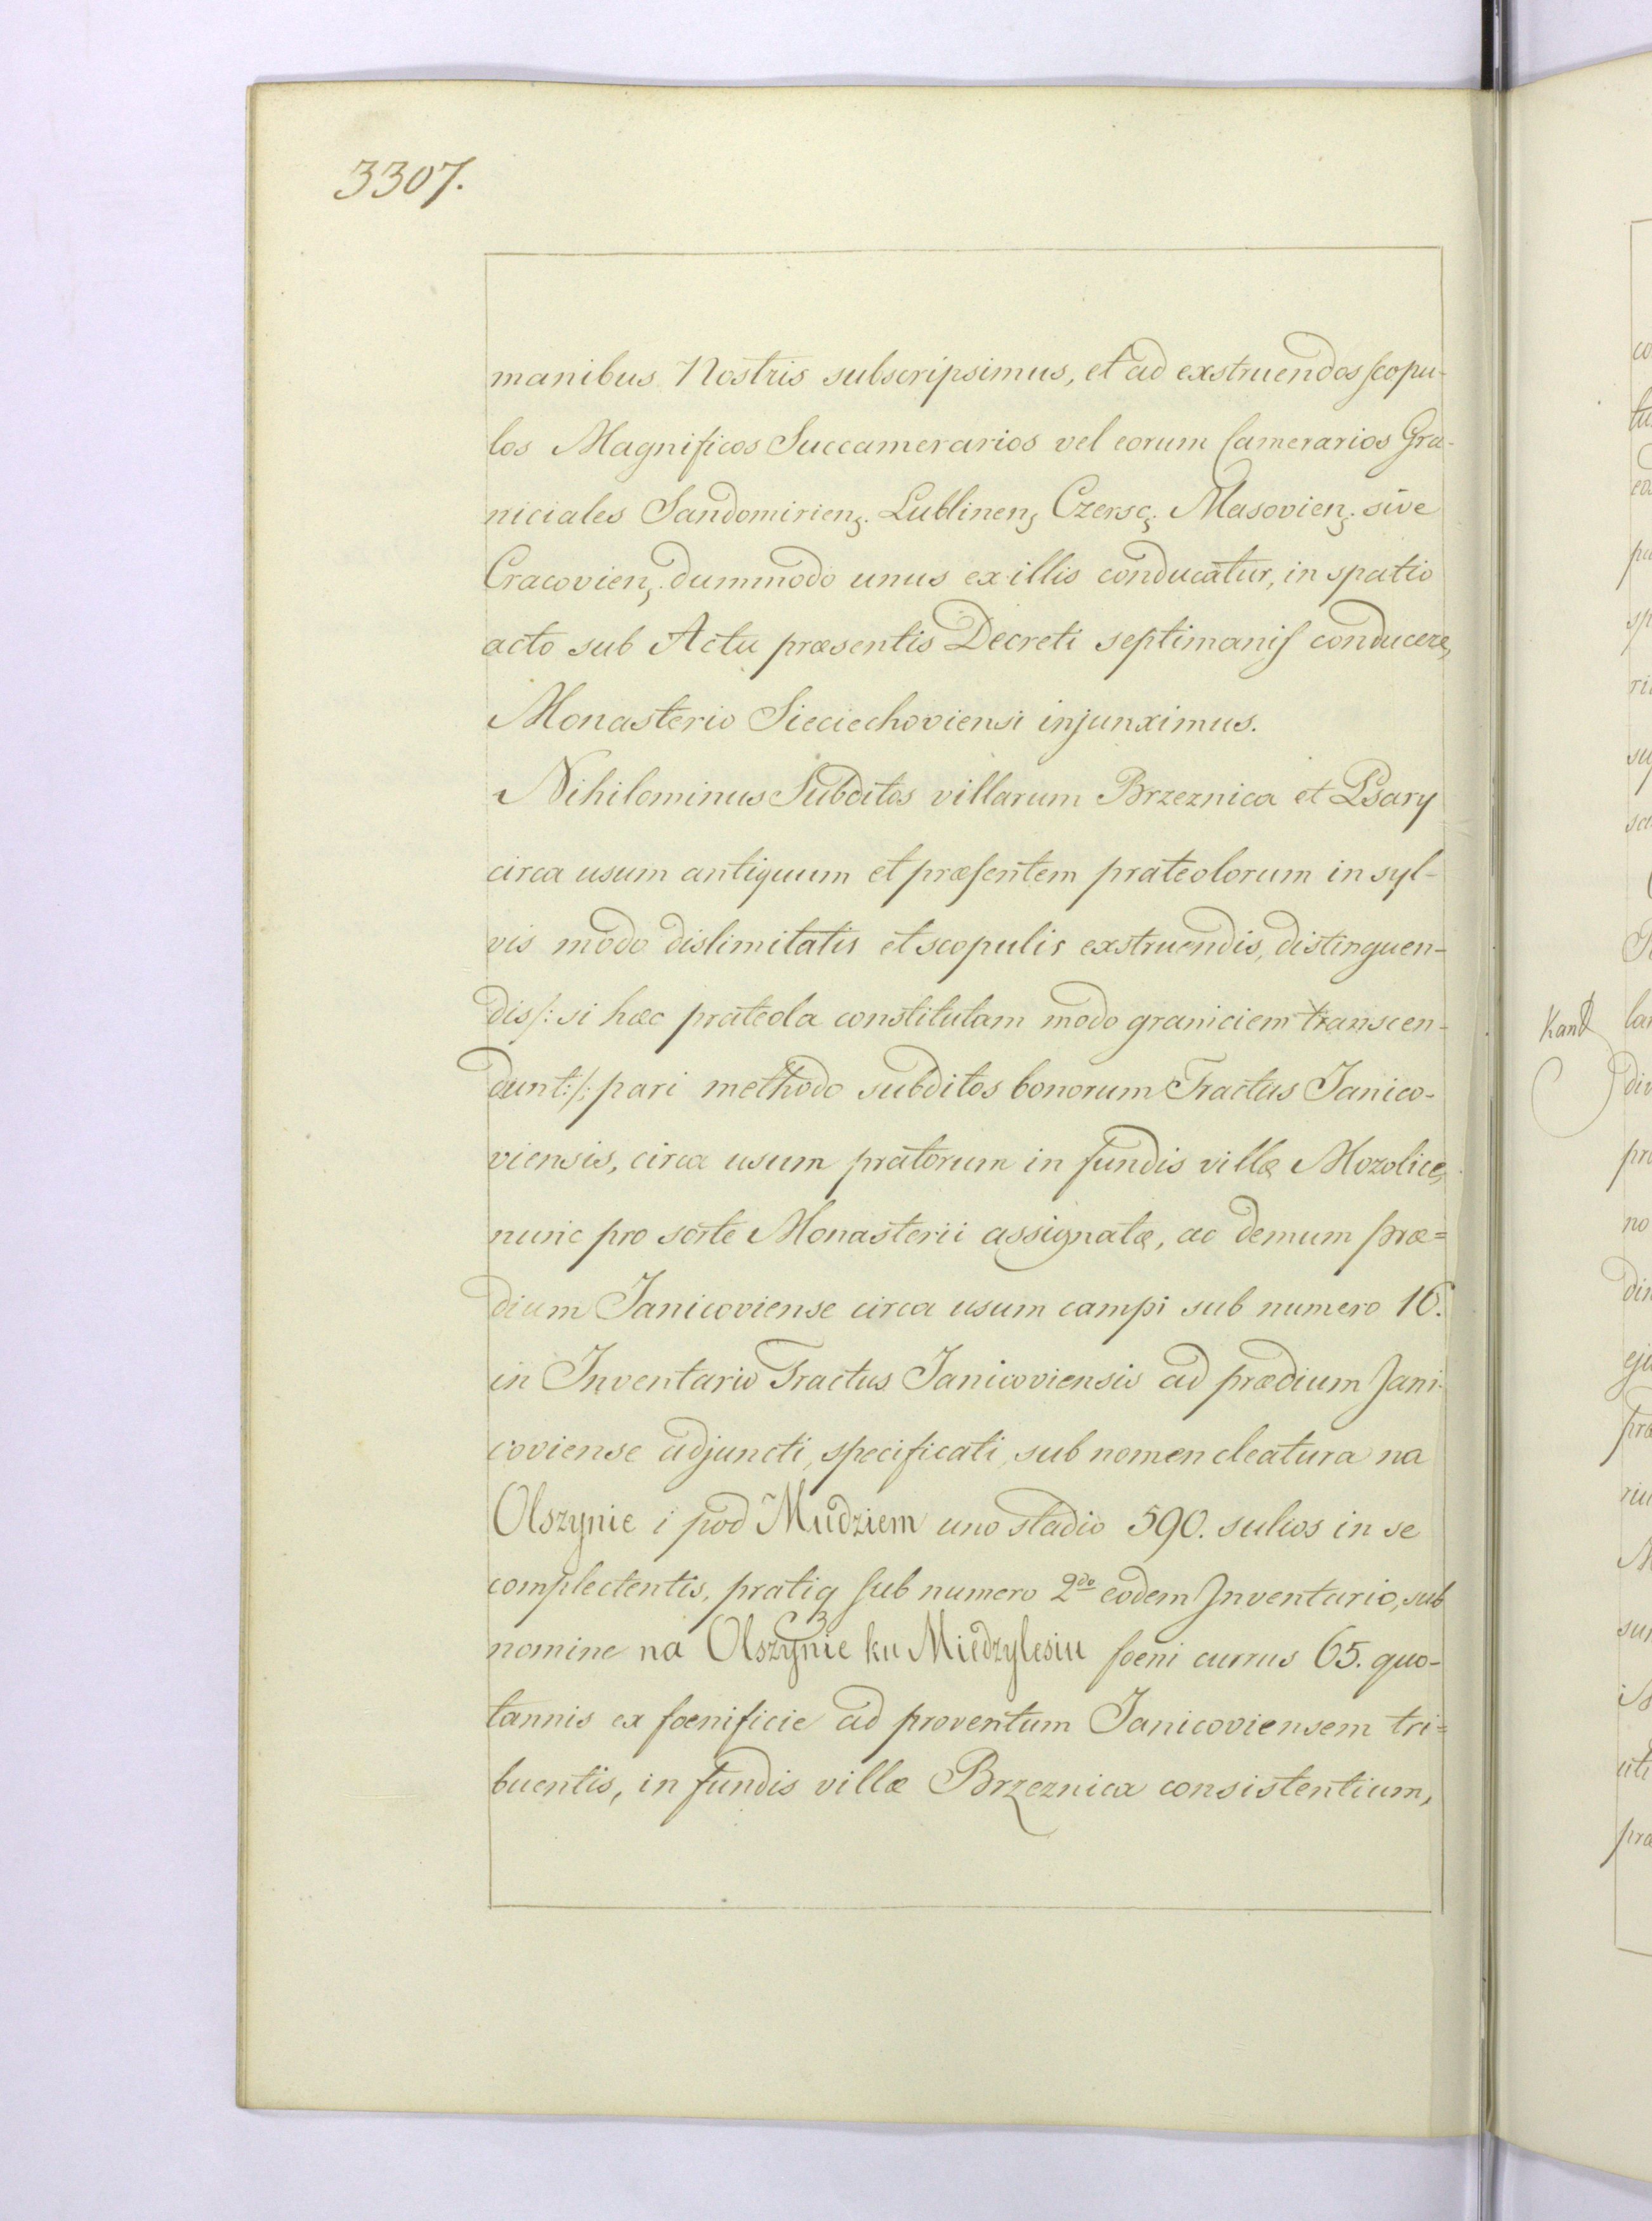 3307.
manibus Nostris subscripsimus, et ad exstruendos scopu-
los Magnificos Succamerarios vel eorum Camerarios Gra-
niciales Sandomirien. Lublinen, Czersc. Masovien. sive
Cracovien, dummodo unus ex illis conducatur, in spatio
acto sub Actu præsentis Decreti septimanis conducere,
Monasterio Sieciechoviensi injunximus.
Nihilominus Subditos villarum Brzeznica et Psary
circa usum antiquum et præsentem prateolorum in syl-
vis modo dislimitatis et scopulis exstruendis, distinguen-
dis/: si hæc prateola constitutam modo graniciem transcen-
dunt:/: pari methodo subditos bonorum Tractus Janico-
viensis, circa usum pratorum in fundis villæ Mozolice,
nunc pro sorte Monasterii assignatæ, ac demum præ=
dium Janicoviense circa usum campi sub numero 16.
in Inventario Tractus Janicoviensis ad prædium Jani-
coviense adjuncti, specificati, sub nomencleatura na
Olszynie i pod Mudziem uno stadio 590. sulcos in se
complectentis, pratiq sub numero 2do eodem Inventario, sub
nomine na Olszynie ku Miedzylesiu foeni currus 65. quo-
tannis ex foenificie ad proventum Janicoviensem tri=
buentis, in fundis villæ Brzeznica consistentium,